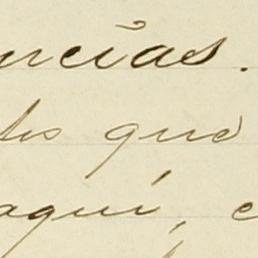 ncias.
que
aquí, e